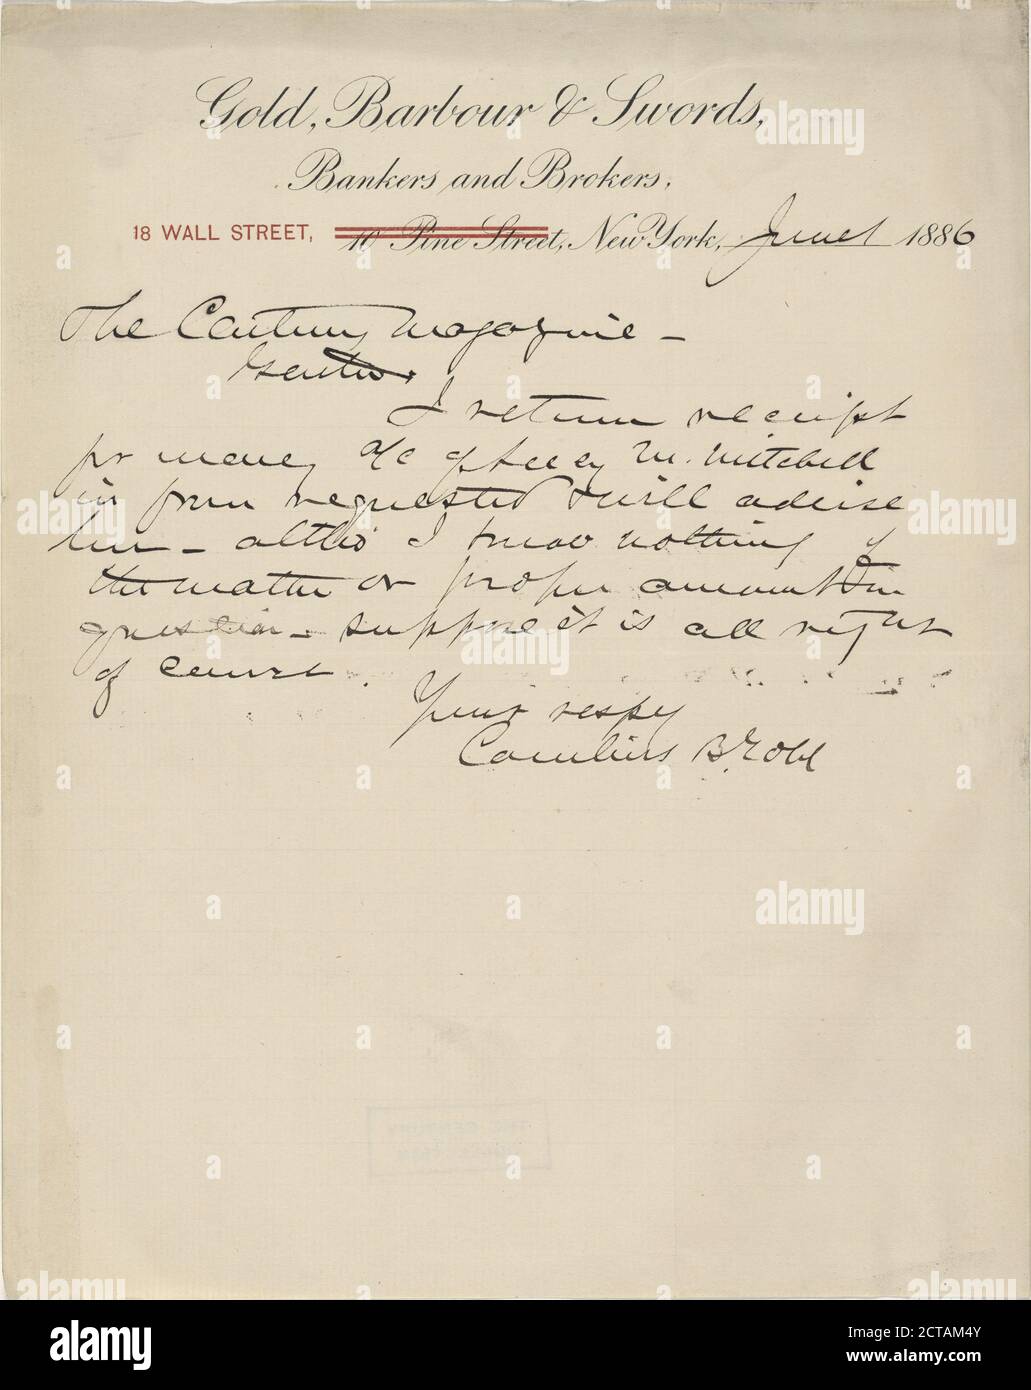 Gold, Barbour & Swords,
Bankers and Brokers,
18 WALL STREET, 10 Pine Street, New York, June 1 1886
The Century Magazine –
Gents.
I return receipt
for money a/c of Lucy M. Mitchell
in form requested & will advise
her – altho' I know nothing of
the matter or proper amount in
question – suppose it is all right
of course.
Your respy
B. Gold
alamy
Image ID: 2CTAM4Y
www.alamy.com